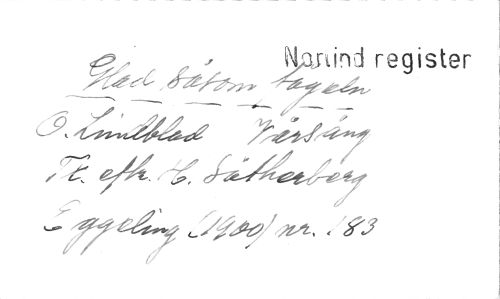 Nonind register
Glad såsom fågeln
O. Lindblad Vårsång
Tt. eftr. H. Sätherberg
Eggeling (1900) nr. 183